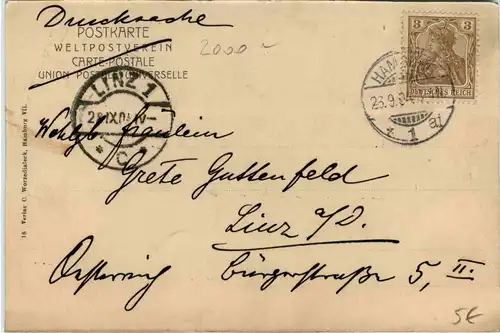 Drucksache
POSTKARTE
WELTPOSTVEREIN
CARTE POSTALE
UNION POSTALE UNIVERSELLE
2000 -
3 3
DEUTSCHES REICH
HAMBURG
23.9.04
* 1 a
LINZ 1
IX 04
* C *
Wohlgb. Fräulein
Grete Guttenfeld
Linz a/D.
Oesterreich Bürgerstraße 5, II.
16 Verlag C. Worzedialeck, Hamburg VII.
5€